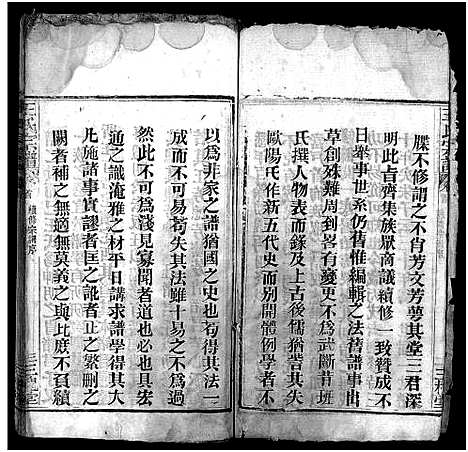 牒不修謂之不肖芳文芳蕚其堂三君深
明此㫖齊集族眾商議續修一致贊成不
日舉事世系仍舊惟編輯之法舊譜事出
草創殊難周到畧有變更不為武斷昔班
氏撰人物表及上古後儒猶訾其失
歐陽氏作新五代史而別開體例學者不
以為非家之譜猶國之史也苟得其法一
成而不可易苟失其法雖十易之不為過
然此不可為淺見寡聞者道也必也具宏
通之識淹雅之材平日講求譜學得其大
凡施諸事實謬者匡之訛者正之繁刪之
闕者補之無適無莫義之與比庶不負續
王氏宗譜
首
續修宗譜序
三槐堂